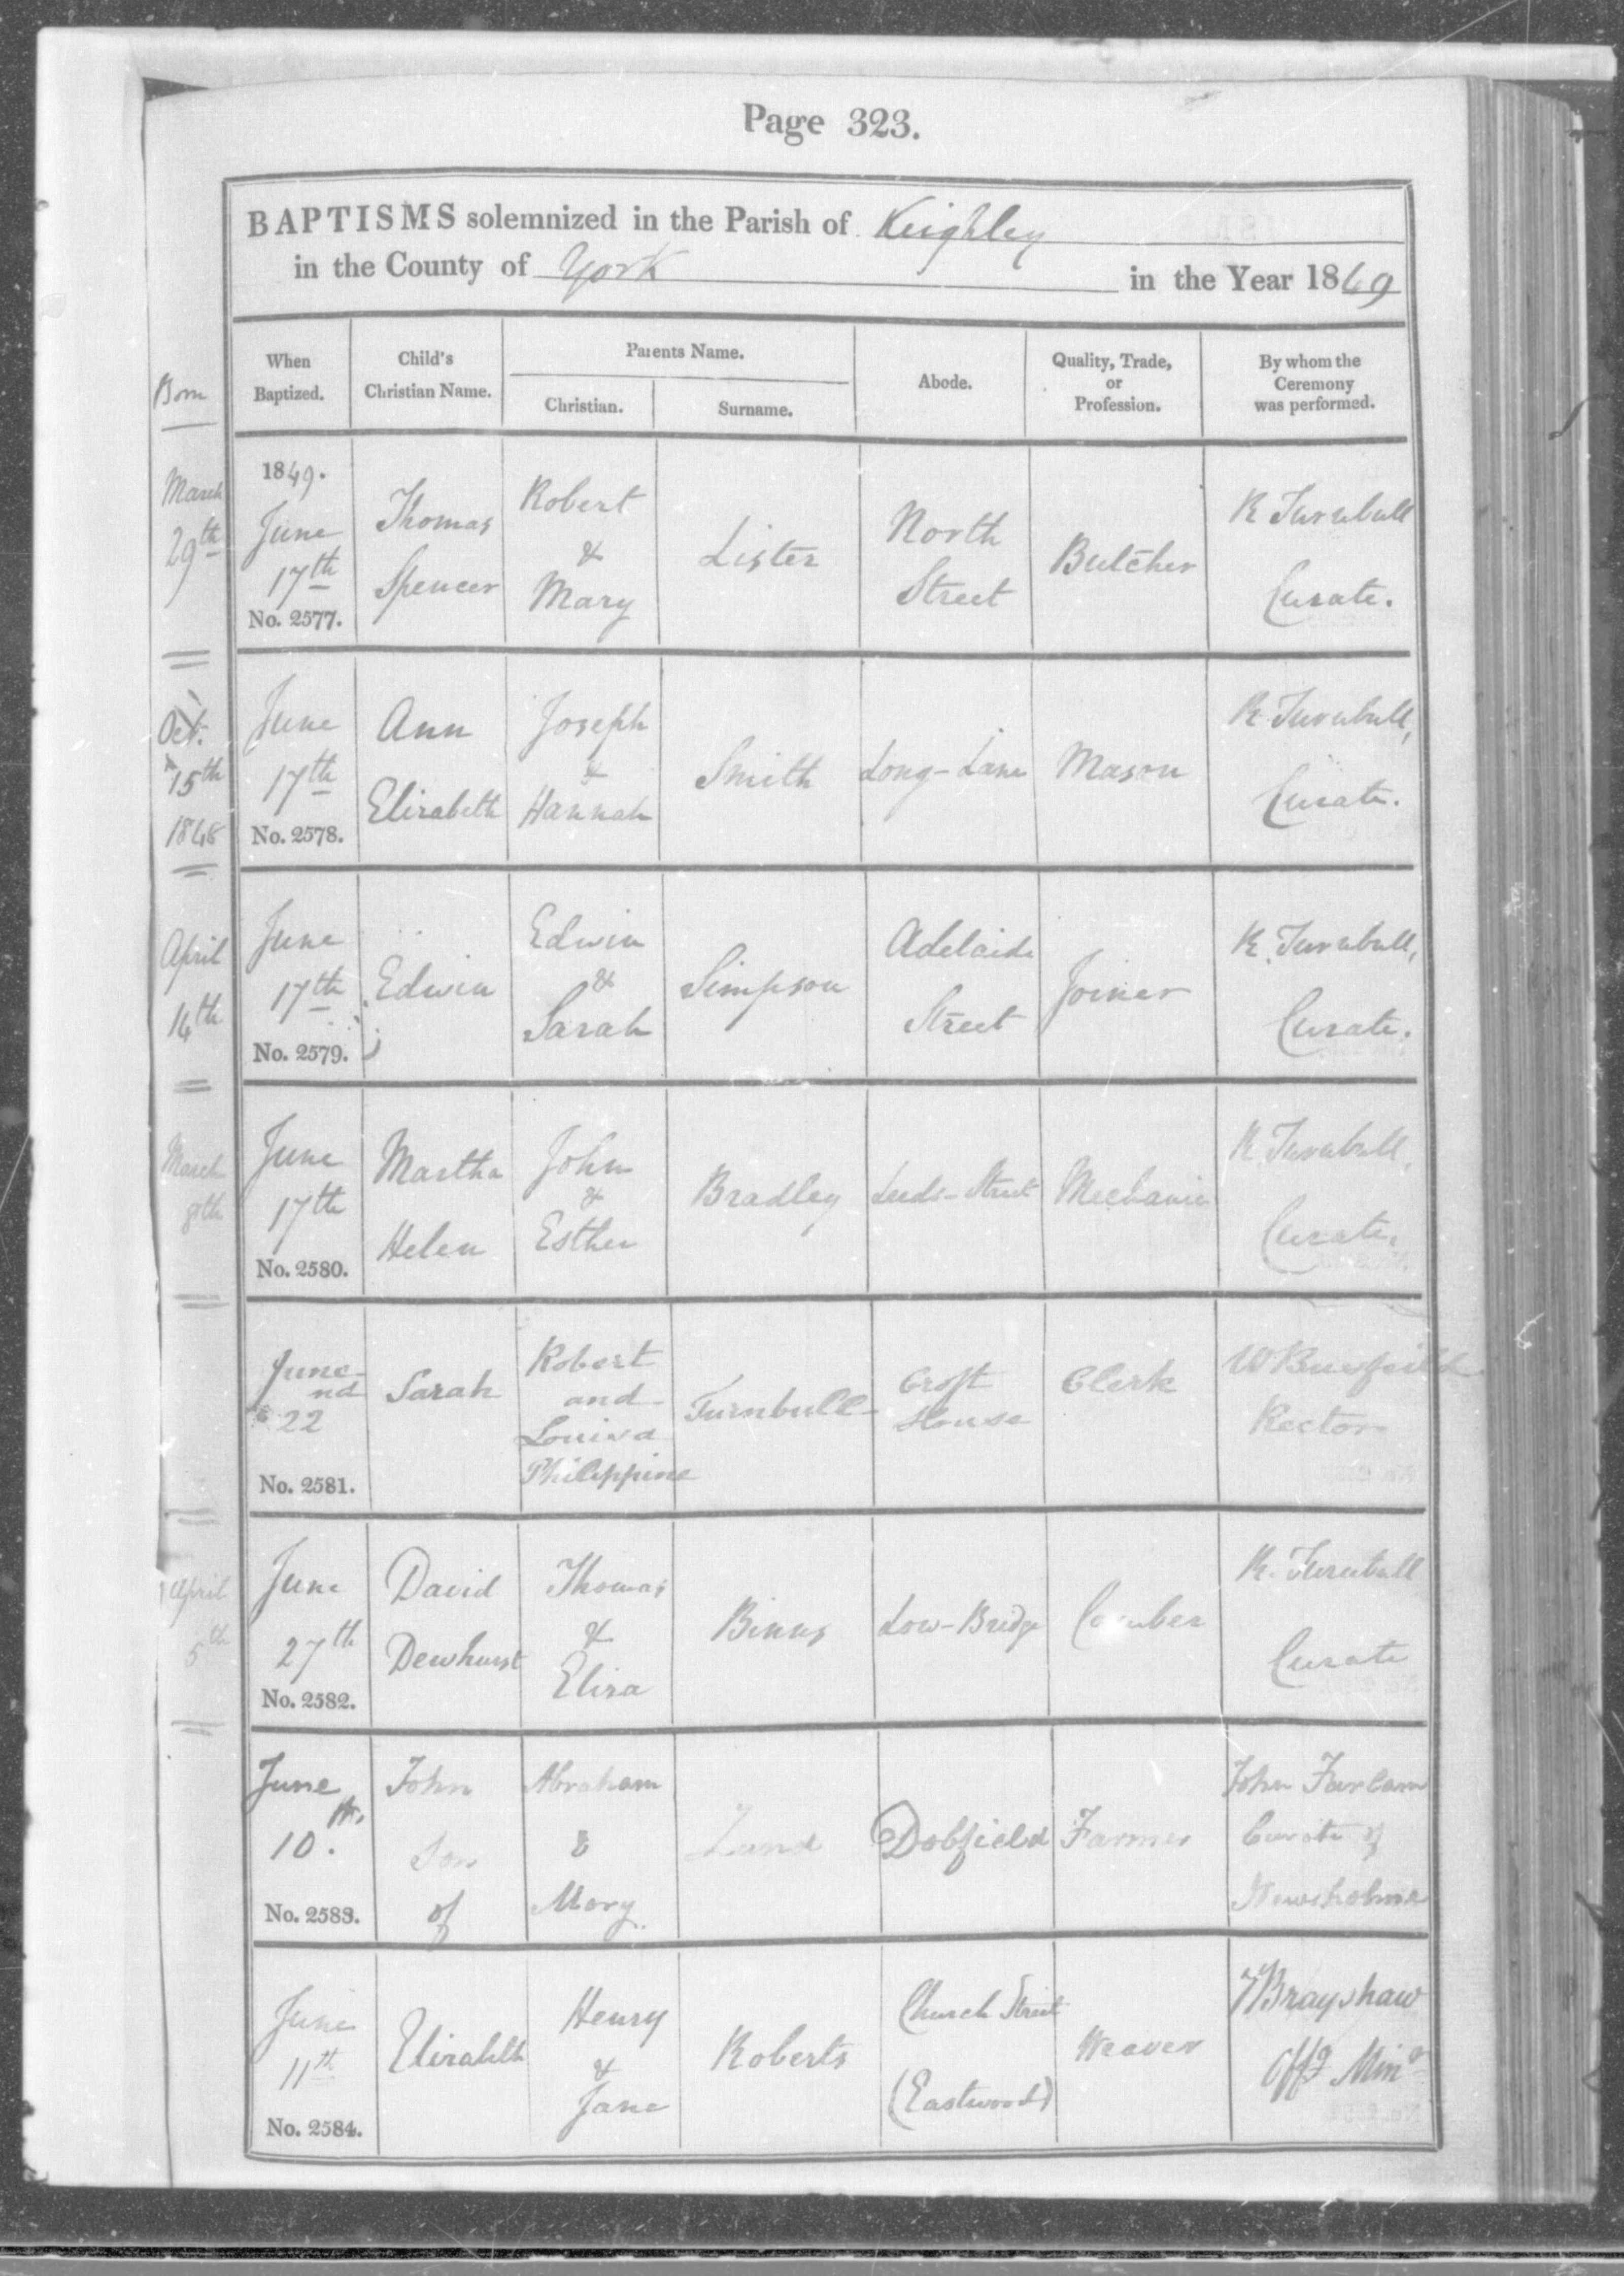 Page 323.
BAPTISMS solemnized in the Parish of Keighley
in the County of York in the Year 1849
Born
When Baptized.
Child's Christian Name.
Parents Name.
Christian.
Surname.
Abode.
Quality, Trade, or Profession.
By whom the Ceremony was performed.
March 29th
1849.
June 17th
No. 2577.
Thomas Spencer
Robert & Mary
Lister
North Street
Butcher
R Turnbull Curate.
Oct. 15th 1848
June 17th
No. 2578.
Ann Elizabeth
Joseph & Hannah
Smith
Long-Lane
Mason
R. Turnbull, Curate.
April 14th
June 17th
No. 2579.
Edwin
Edwin & Sarah
Simpson
Adelaide Street
Joiner
R. Turnbull, Curate.
March 8th
June 17th
No. 2580.
Martha Helen
John & Esther
Bradley
Leeds-Street
Mechanic
R. Turnbull, Curate.
June 22nd
No. 2581.
Sarah
Robert and Louisa Philippine
Turnbull
Croft House
Clerk
W Busfeild Rector
April 5th
June 27th
No. 2582.
David Dewhurst
Thomas & Eliza
Binns
Low-Bridge
Comber
R. Turnbull Curate
June 10th.
No. 2583.
John Son of
Abraham & Mary
Lund
Dobfield
Farmer
John Curate of Newsholme
June 11th
No. 2584.
Elizabeth
Henry & Jane
Roberts
Church Street (Eastwood)
Weaver
Brayshaw Offg Minr